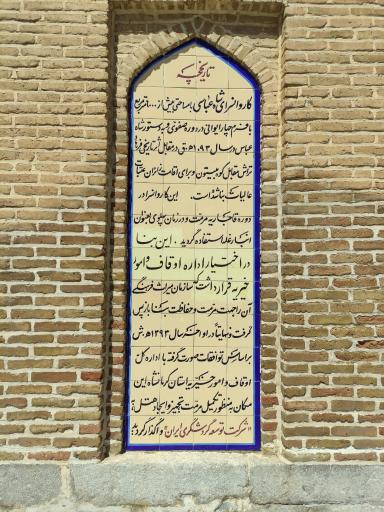 تاریخچه
کاروانسرای شاه عباسی با مساحتی بیش از ... متر مربع
با فرم چهار ایوانی در دوره صفوی و به دستور شاه
عباس در سال ۱۰۹۳ ه.ق در مقابل اثر تاریخی فرهاد
تراش مقابل کوه بیستون و برای اقامت زائران عتبات
عالیات بنا شده است. این کاروانسرا در
دوره قاجاریه مرمت و در زمان پهلوی بعنوان
انبار غله استفاده گردید. این بنا
در اختیار اداره اوقاف و امور
خیریه قرار داشت که سازمان میراث فرهنگی
آن را جهت مرمت و حفاظت بنا باز پس
گرفت و نهایتاً در اواخر سال ۱۳۹۳ ه.ش
براساس توافقات صورت گرفته با اداره کل
اوقاف و امور خیریه استان کرمانشاه این
مکان به منظور تکمیل مرمت تجهیز و ایجاد هتل به
«شرکت توسعه گردشگری ایران» واگذار گردید